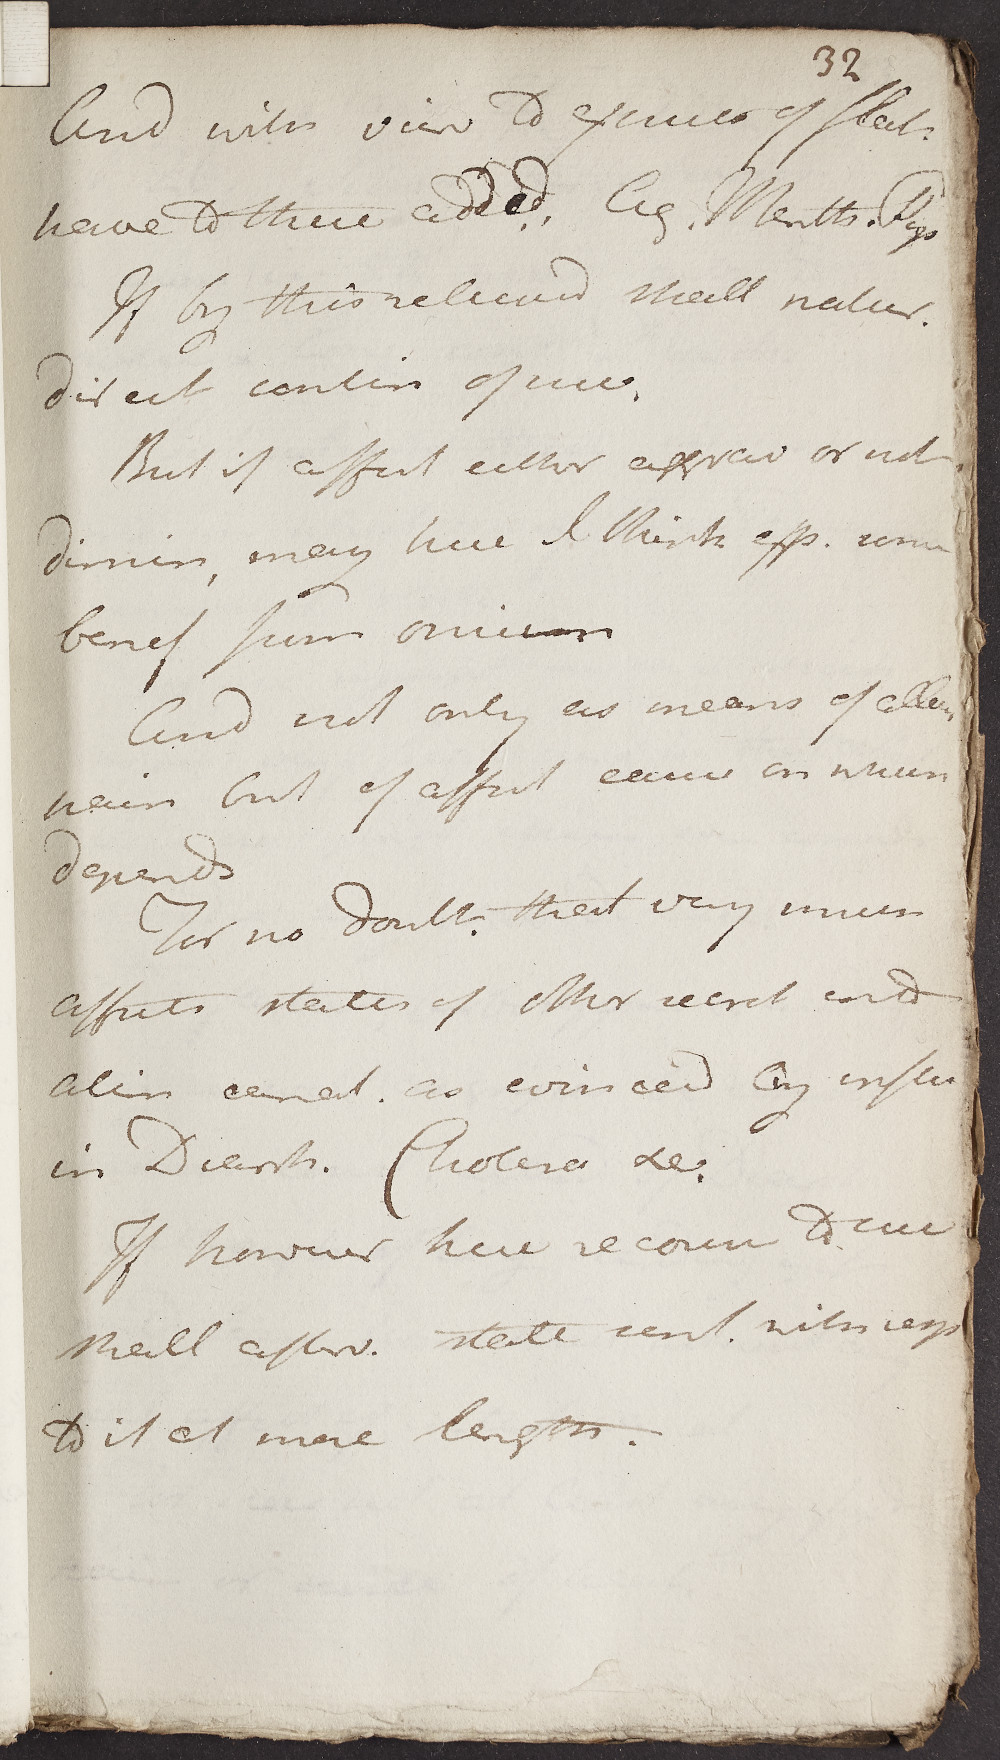 32
And with view to expuls of flat.
have to these added, Aq. Menth. Pip
If by this relieved shall natur.
direct contin of use.
But if affect either aggrav or not
dimin, may here I think exp. some
benef from opium
And not only as means of allev
pain but of affect cause on which
depends
For no doubt. that very much
affects states of other secret into
alin canal. as evinced by influ
in Diarrh. Cholera &c.
If however have recourse to use
shall afterw. state sent. with resp
to it at more length.